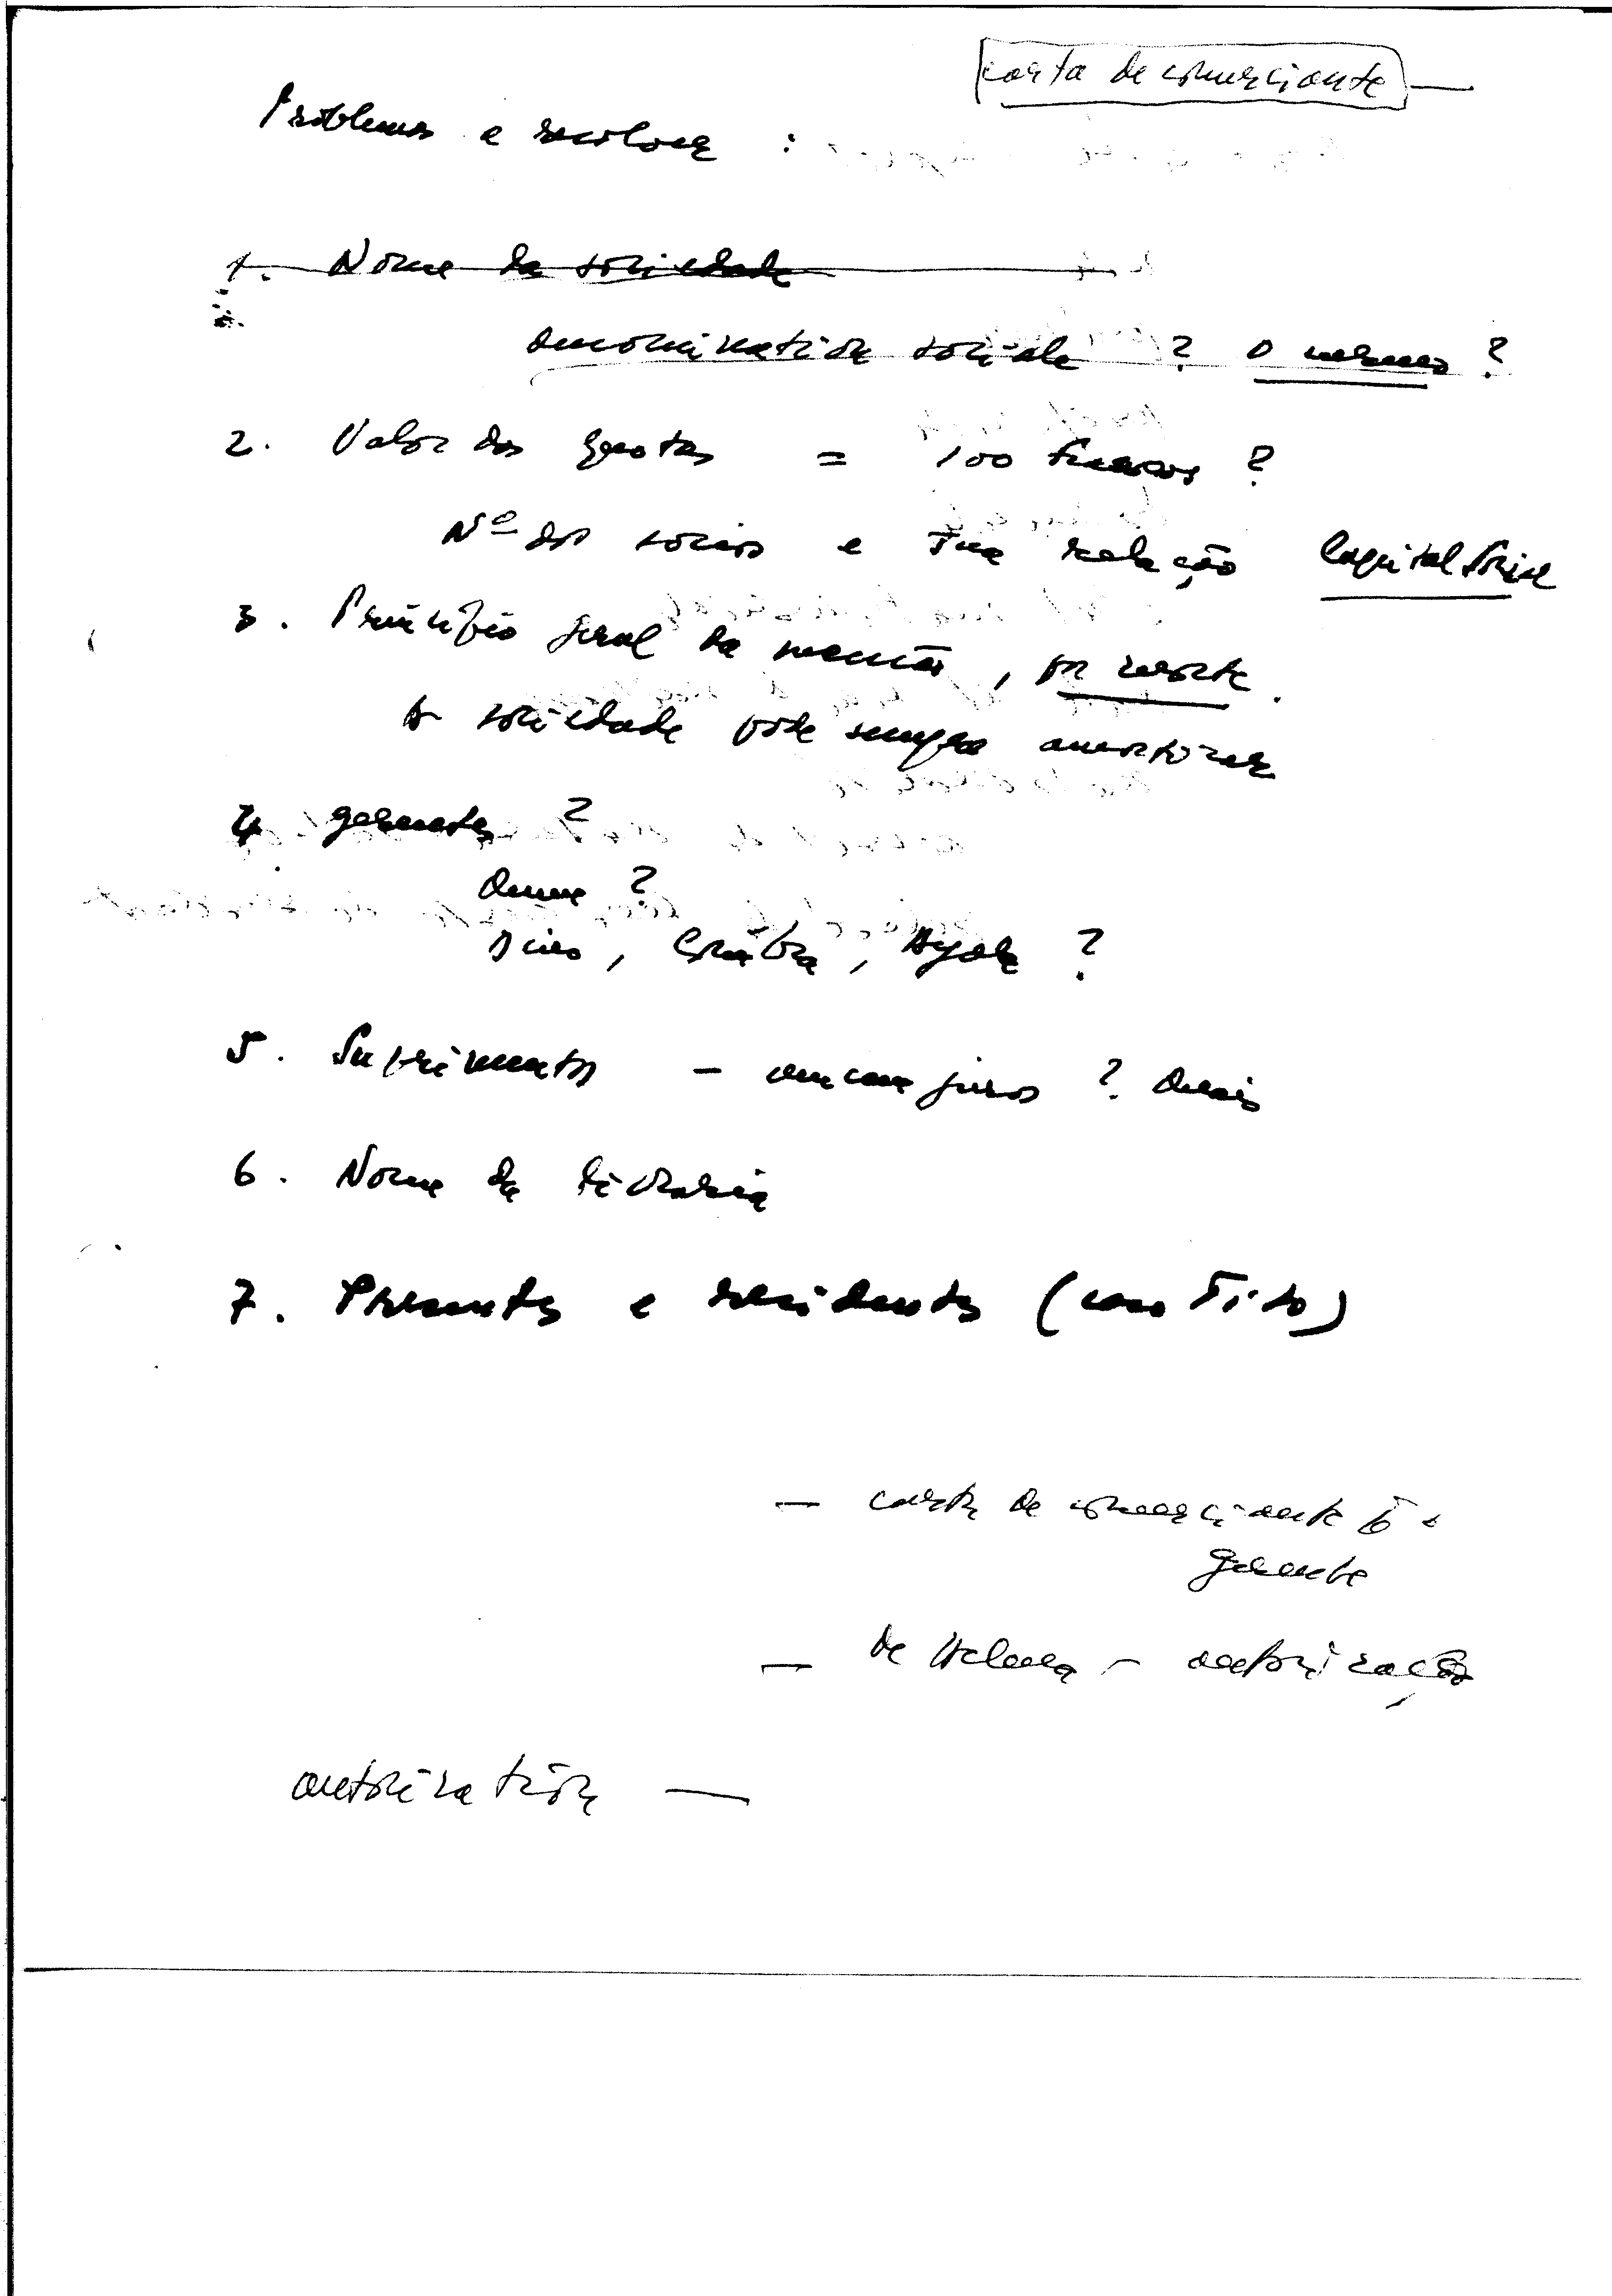 carta de comerciante
Problemas a resolver :
1. Nome da sociedade
denomination sociale ? O mesmo ?
2. Valor das quotas = 100 francos ?
Nº dos socios e sua relação Capital Social
3. Princípio geral da
A sociedade pode sempre amortizar
4 gerentes ?
?
, Coimbra, Ayala ?
5. Suprimentos - vencem juros ? Quais
6. Nome da livraria
7. Presentes e residentes (caso Tito)
— carta de comerciante
gerente
— de — autorização
autorization —